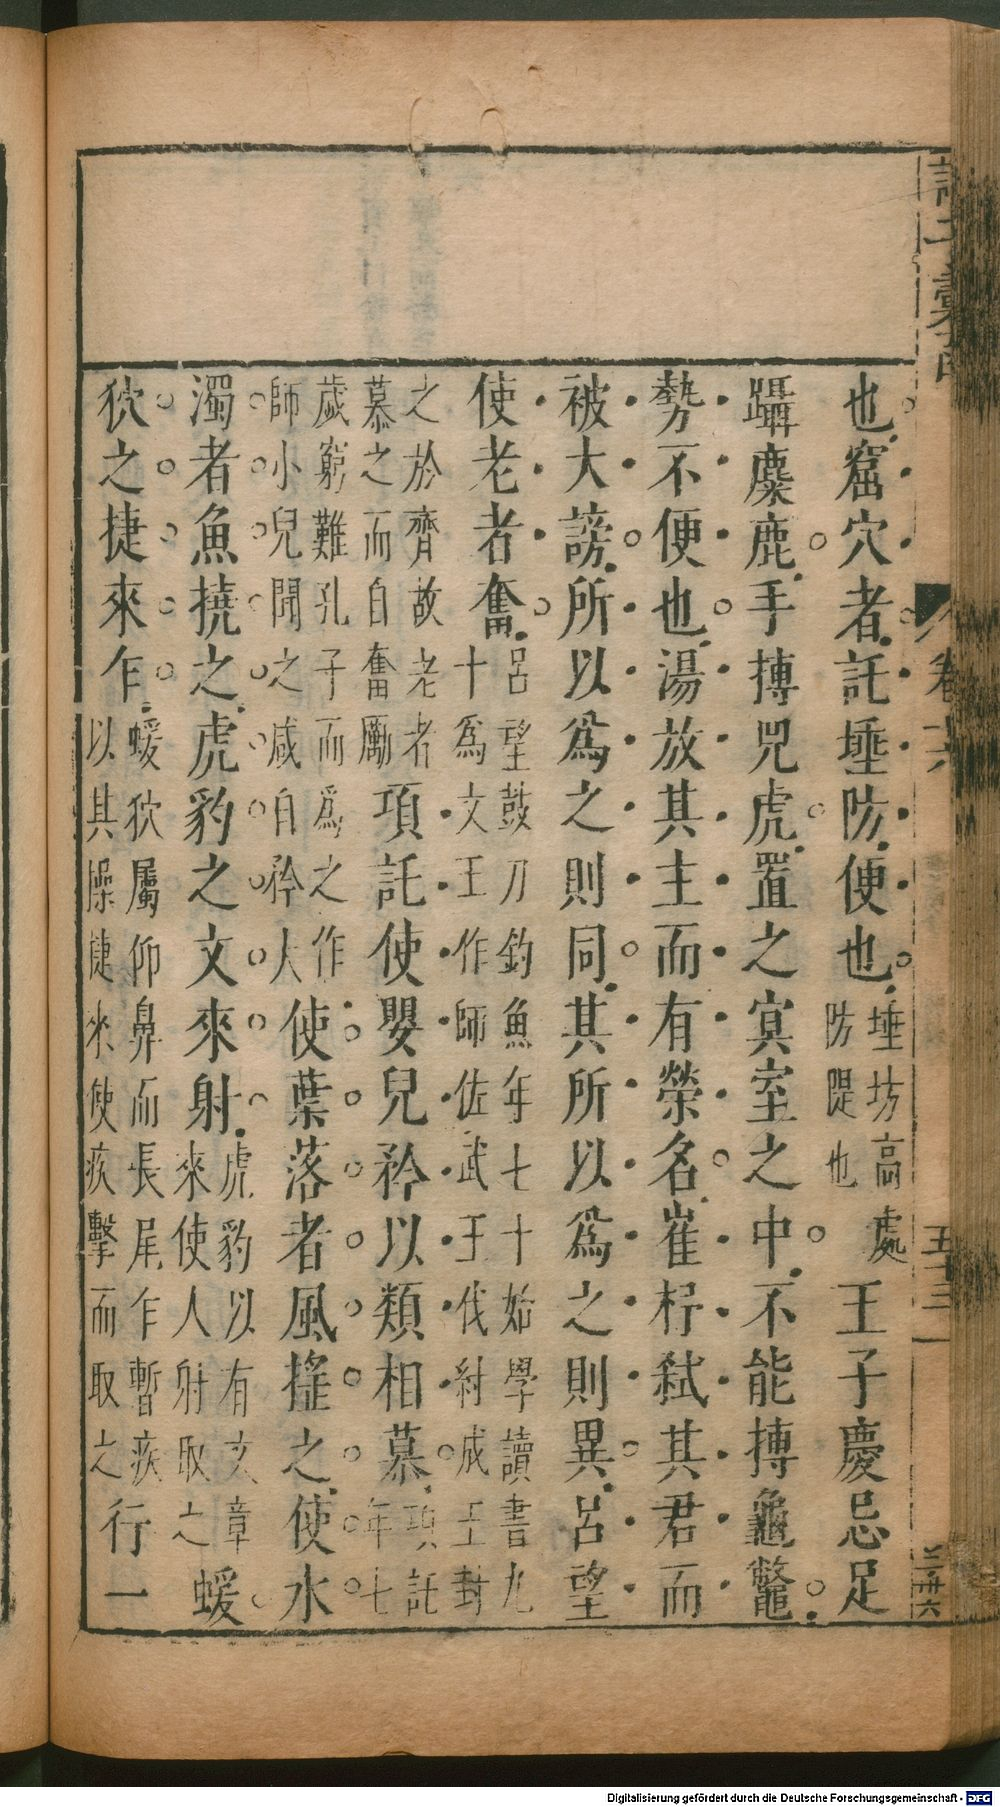 諸子彙函
卷十六
五十三
也窟穴者託埵防便也埵坊高處防隄也王子慶忌足
躡麋鹿手搏兕虎置之冥室之中不能搏龜鼈
勢不便也湯放其主而有榮名崔杼弒其君而
被大謗所以爲之則同其所以爲之則異呂望
使老者奮呂望鼓刀釣魚年七十始學讀書九十爲文王作師佐武王伐紂成王封
之於齊故老者慕之而自奮勵項託使嬰兒矜以類相慕項託年七
歲窮難孔子而爲之作師小兒聞之咸自矜大使葉落者風搖之使水
濁者魚撓之虎豹之文來射虎豹以有文章來使人射取之蝯
狖之捷來乍蝯狖屬仰鼻而長尾乍暫疾以其操捷來使疾擊而取之行一
Digitalisierung gefördert durch die Deutsche Forschungsgemeinschaft - DFG